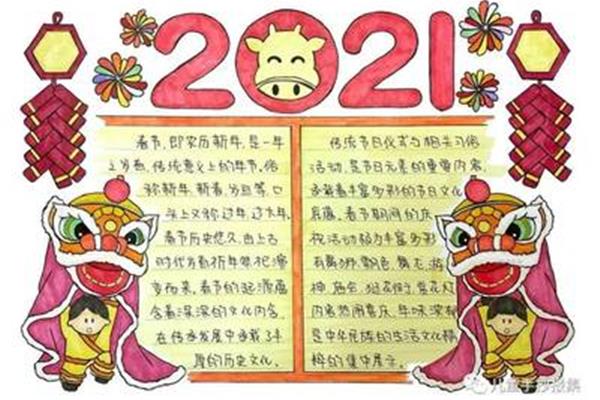 2021
春节,即农历新年,是一年
之岁首,传统意义上的年节。俗
称新年,新春,岁旦等,口
头上又称过年,过大年。
春节历史悠久,由上古
时代岁首祈年祭祀演
变而来。春节的起源蕴
含着深深的文化内容,
在传承发展中承载了丰
厚的历史文化。
传统节日仪式与相关习俗
活动,是节日元素的重要内容,
承载着丰富多彩的节日文化
底蕴。春节期间的庆
祝活动极为丰富多彩
有舞狮,飘色,舞龙,游
神,庙会,逛花街,赏花灯
内容热闹喜庆,年味浓郁
是中华民族的生活文化精
粹的集中展示。
儿童手抄报集